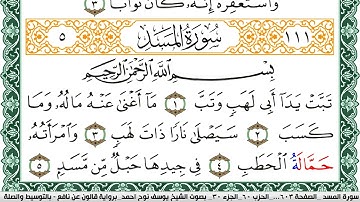 وَاسْتَغْفِرْهُ إِنَّهُ كَانَ تَوَّابًا ٣
١١١ سُورَةُ الْمَسَدِ ٥
بِسْمِ اللَّهِ الرَّحْمَٰنِ الرَّحِيمِ
تَبَّتْ يَدَا أَبِي لَهَبٍ وَتَبَّ ١ مَا أَغْنَىٰ عَنْهُ مَالُهُ وَمَا
كَسَبَ ٢ سَيَصْلَىٰ نَارًا ذَاتَ لَهَبٍ ٣ وَامْرَأَتُهُ
حَمَّالَةُ الْحَطَبِ ٤ فِي جِيدِهَا حَبْلٌ مِّن مَّسَدٍ ٥
سورة المسد .. الصفحة ٦٠٣ .. الحزب ٦٠ .. الجزء ٣٠ .. بصوت الشيخ يوسف نوح احمد .. برواية قالون عن نافع - بالتوسيط والصلة